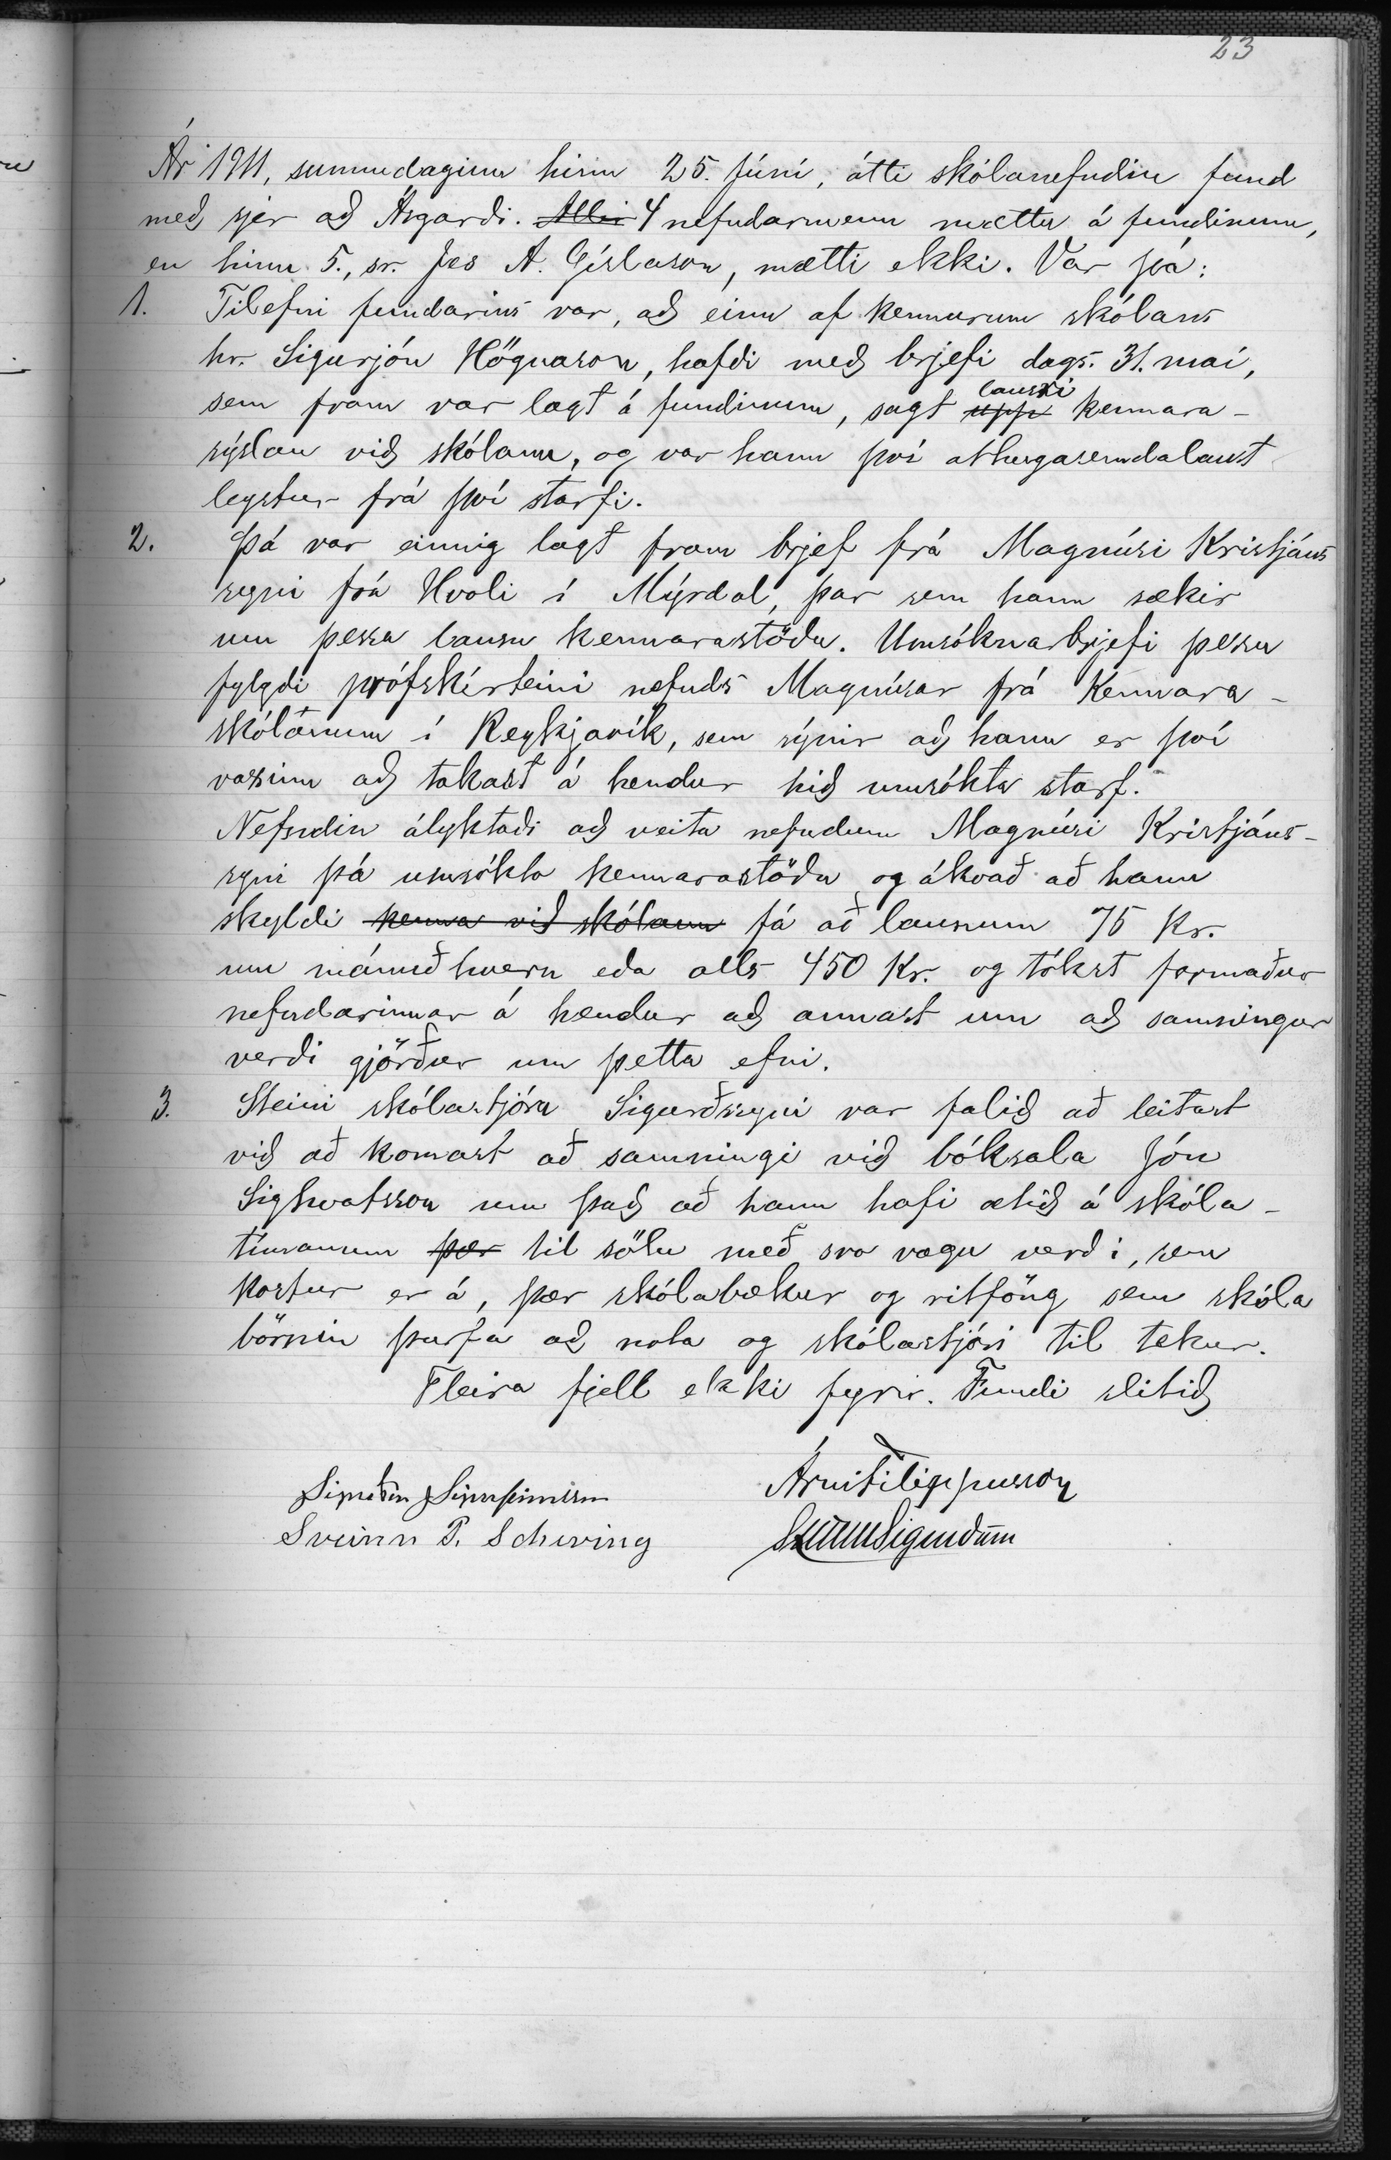 23
Ár 1911, sunnudaginn hinn 25. júní, átti skólanefndin fund
með sjer að Ásgarði. Allir 4 nefndarmenn mættu á fundinum,
en hinn 5., sr. Jes A. Gíslason, mætti ekki. Var þá:
1. Tilefni fundarins var, að einn af kennurum skólans
hr. Sigurjón Högnason, hafði með brjefi dags. 31. maí,
lausri
sem fram var lagt á fundinum, sagt uppi kennara-
sýslan við skólann, og var hann því athugasemdalaust
leystur frá því starfi.
2. Þá var einnig lagt fram brjef frá Magnúsi Kristjáns
syni frá Hvoli í Mýrdal, þar sem hann sækir
um þessa lausu kennarastöðu. Umsóknarbrjefi þessu
fylgdi prófskírteini nefnds Magnúsar frá Kennara-
skólanum í Reykjavík, sem sýnir að hann er því
vaxinn að takast á hendur hið umsókta starf.
Nefndin ályktaði að veita nefndum Magnúsi Kristjáns-
syni þá umsókta kennarastöðu og ákvað að hann
skyldi kenna við skólann fá að launum 75 Kr.
um mánuð hvern eða alls 450 Kr. og tókst formaður
nefndarinnar á hendur að annast um að samningur
verði gjörður um þetta efni.
3. Steini skólastjóra Sigurðssyni var falið að leitast
við að komast að samningi við bóksala Jón
Sighvatsson um það að hann hafi ætið á skóla-
tímanum þær til sölu með svo vægu verði, sem
kostur er á, þær skólabækur og ritföng sem skóla
börnin þurfa að nota og skólastjóri til tekur.
Fleira fjell ekki fyrir. Fundi slitið
Árni Filippusson
Sveinn P. Scheving
Steinn Sigurðsson